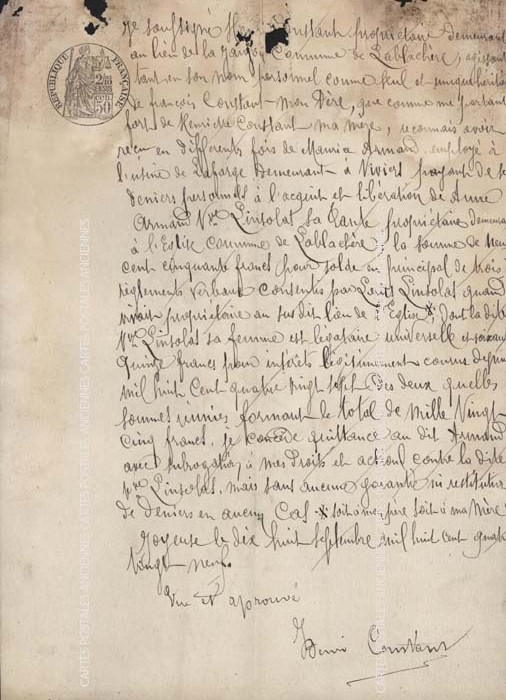 Je soussigné Henri Constant propriétaire demeurant
au lieu de la commune de Lablachère, agissant
tant en son nom personnel comme seul et unique héritier
de françois Constant mon Père, que comme me portant
fort de Constant ma mère, reconnais avoir
reçu en différents fois de Maurice Armand employé à
l'usine de Lafarge demeurant à Viviers payant de ses
deniers personnels à l'acquit et libération de Anne
Armand Vve Linsolat sa tante propriétaire demeurant
à l'Eglise commune de Lablachère la somme de Neuf
cent cinquante francs pour solde en principal de trois
règlements verbaux consentis par Linsolat quand
vivant propriétaire au sus dit lieu de l'Eglise, dont la dite
Vve Linsolat sa femme est légataire universelle et soixante
quinze francs pour intérêts légitimement courus depuis
mil huit cent quatre vingt sept, des deux quelles
sommes réunies formant le total de Mille Vingt
cinq francs. Je concède quittance au dit Armand
avec subrogation à mes droits et actions contre la dite
Vve Linsolas, mais sans aucune garantie ni restitution
de deniers en aucun cas soit à mère
Joyeuse le dix huit septembre mil huit cent quatre
vingt neuf.
Vu et aprouvé
Henri Constant
RÉPUBLIQUE FRANÇAISE
50
CARTES POSTALES ANCIENNES